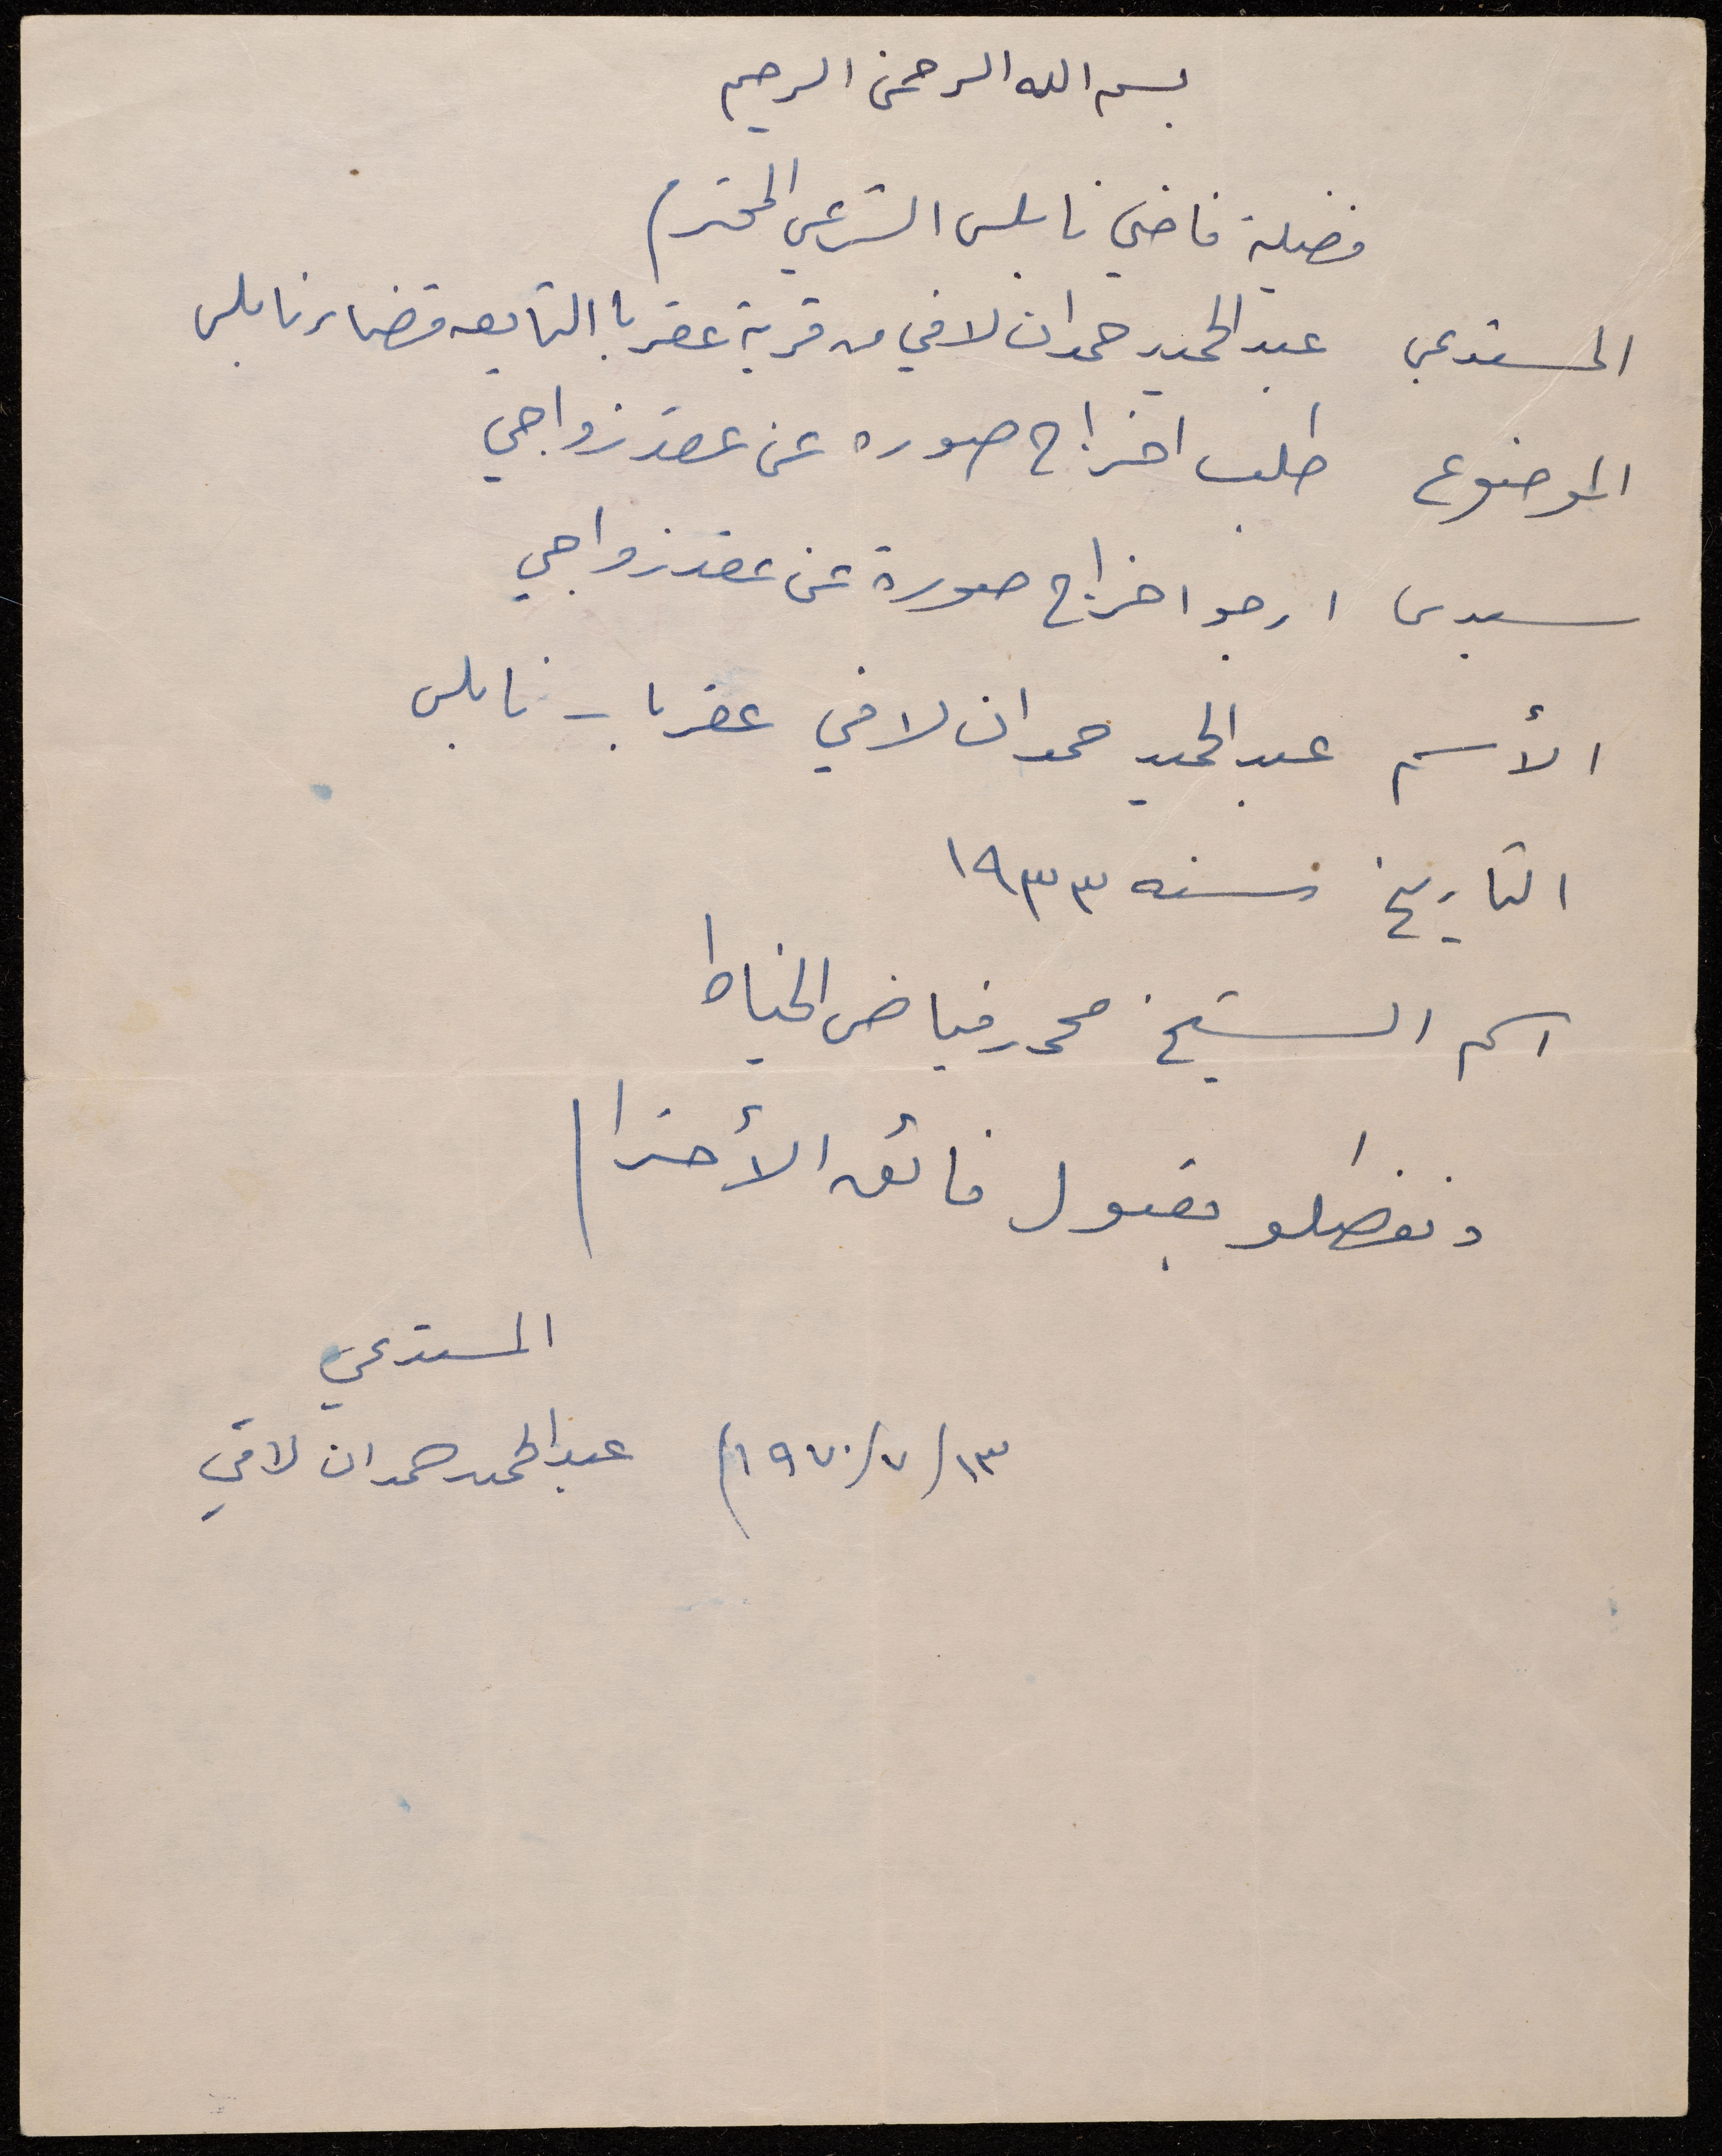 بسم الله الرحمن الرحيم
فضيلة قاضي نابلس الشرعي المحترم
المستدعي عبد الحميد حمدان لافي من قرية عقربا التابعه قضاء نابلس
الموضوع طلب اخراج صوره عن عقد زواجي
سيدي ارجو اخراج صورة عن عقد زواجي
الأسم عبد الحميد حمدان لافي عقربا - نابلس
التاريخ سنه ١٩٣٣
اسم الشيخ محمد فياض الخياط
وتفضلو بقبول فائق الأحترام
المستدعي
١٣/٧/١٩٧٠ عبد الحميد حمدان لافي